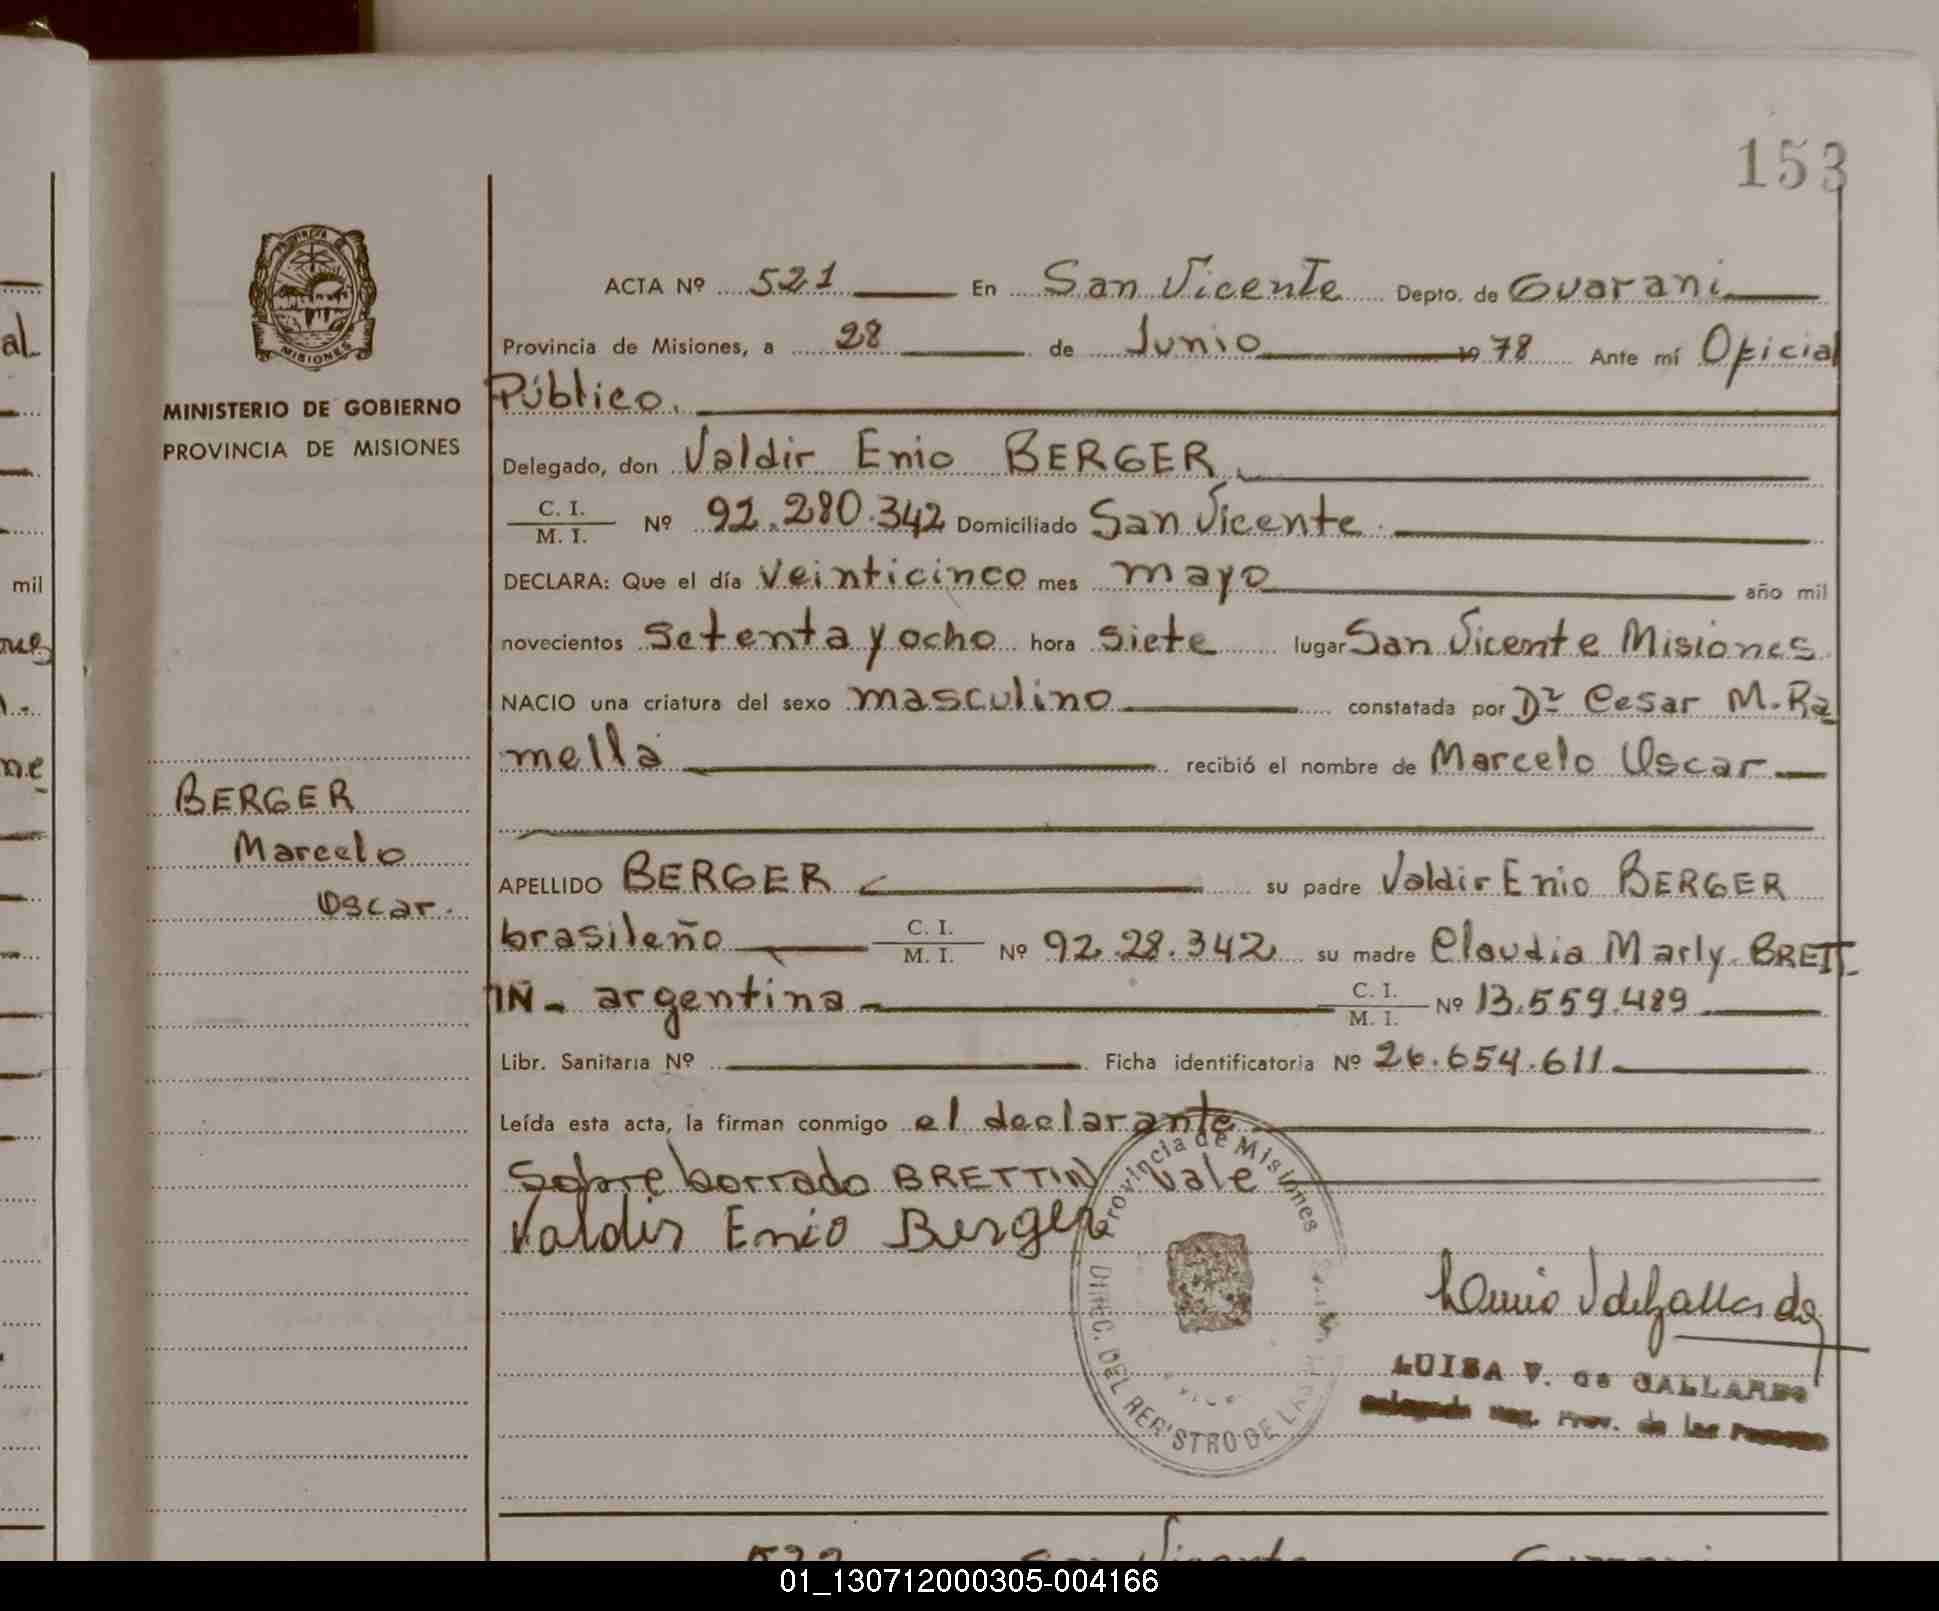 153
PROVINCIA DE
MISIONES
MINISTERIO DE GOBIERNO
PROVINCIA DE MISIONES
BERGER
Marcelo
Oscar.
ACTA Nº 521 En San Vicente Depto. de Guarani
Provincia de Misiones, a 28 de Junio 19 78 Ante mí Oficial
Público.
Delegado, don Valdir Enio BERGER
C. I.
M. I. Nº 92.280.342 Domiciliado San Vicente
DECLARA: Que el día veinticinco mes mayo año mil
novecientos setenta y ocho hora siete lugar San Vicente Misiones
NACIO una criatura del sexo masculino constatada por Dr Cesar M. Ra
mella recibió el nombre de Marcelo Oscar
APELLIDO BERGER su padre Valdir Enio BERGER
brasileño C. I.
M. I. Nº 92.28.342 su madre Claudia Marly BRETT
IN - argentina C. I.
M. I. Nº 13.559.489
Libr. Sanitaria Nº Ficha identificatoria Nº 26.654.611
Leída esta acta, la firman conmigo el declarante
Sobre borrado BRETTIN vale
Valdir Enio Berger
Provincia de Misiones
DIREC. DEL REGISTRO DE LAS
LUISA V. de GALLARDO
Delegada Reg. Prov. de las Personas
522 San Vicente Guarani
al
mil
ne
01_130712000305-004166